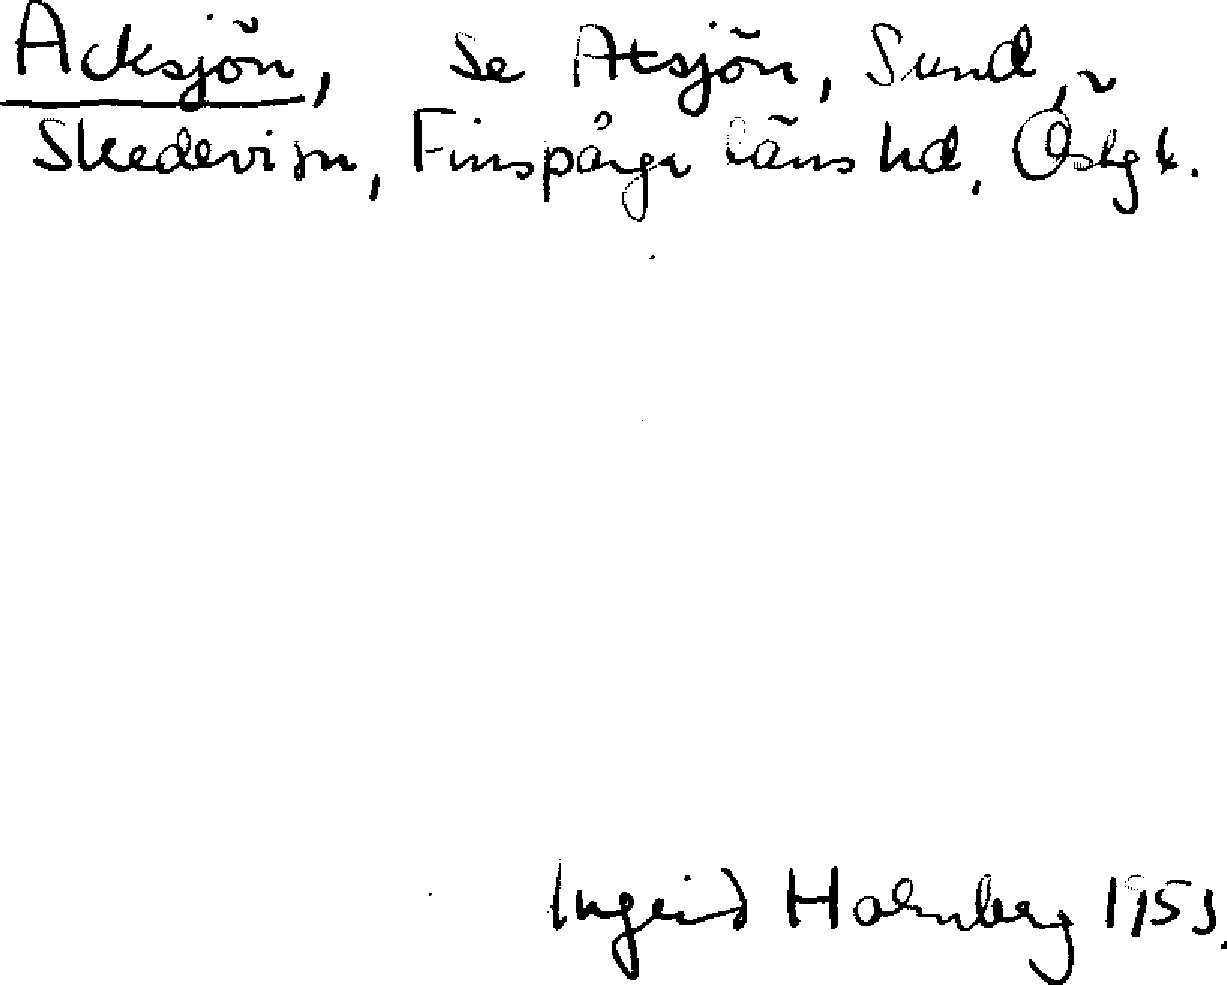 Acksjön, se Atsjön, Sund,
Skedevi sn, Finspånga läns hd, Östgtl.
Ingrid Holmberg 1953.